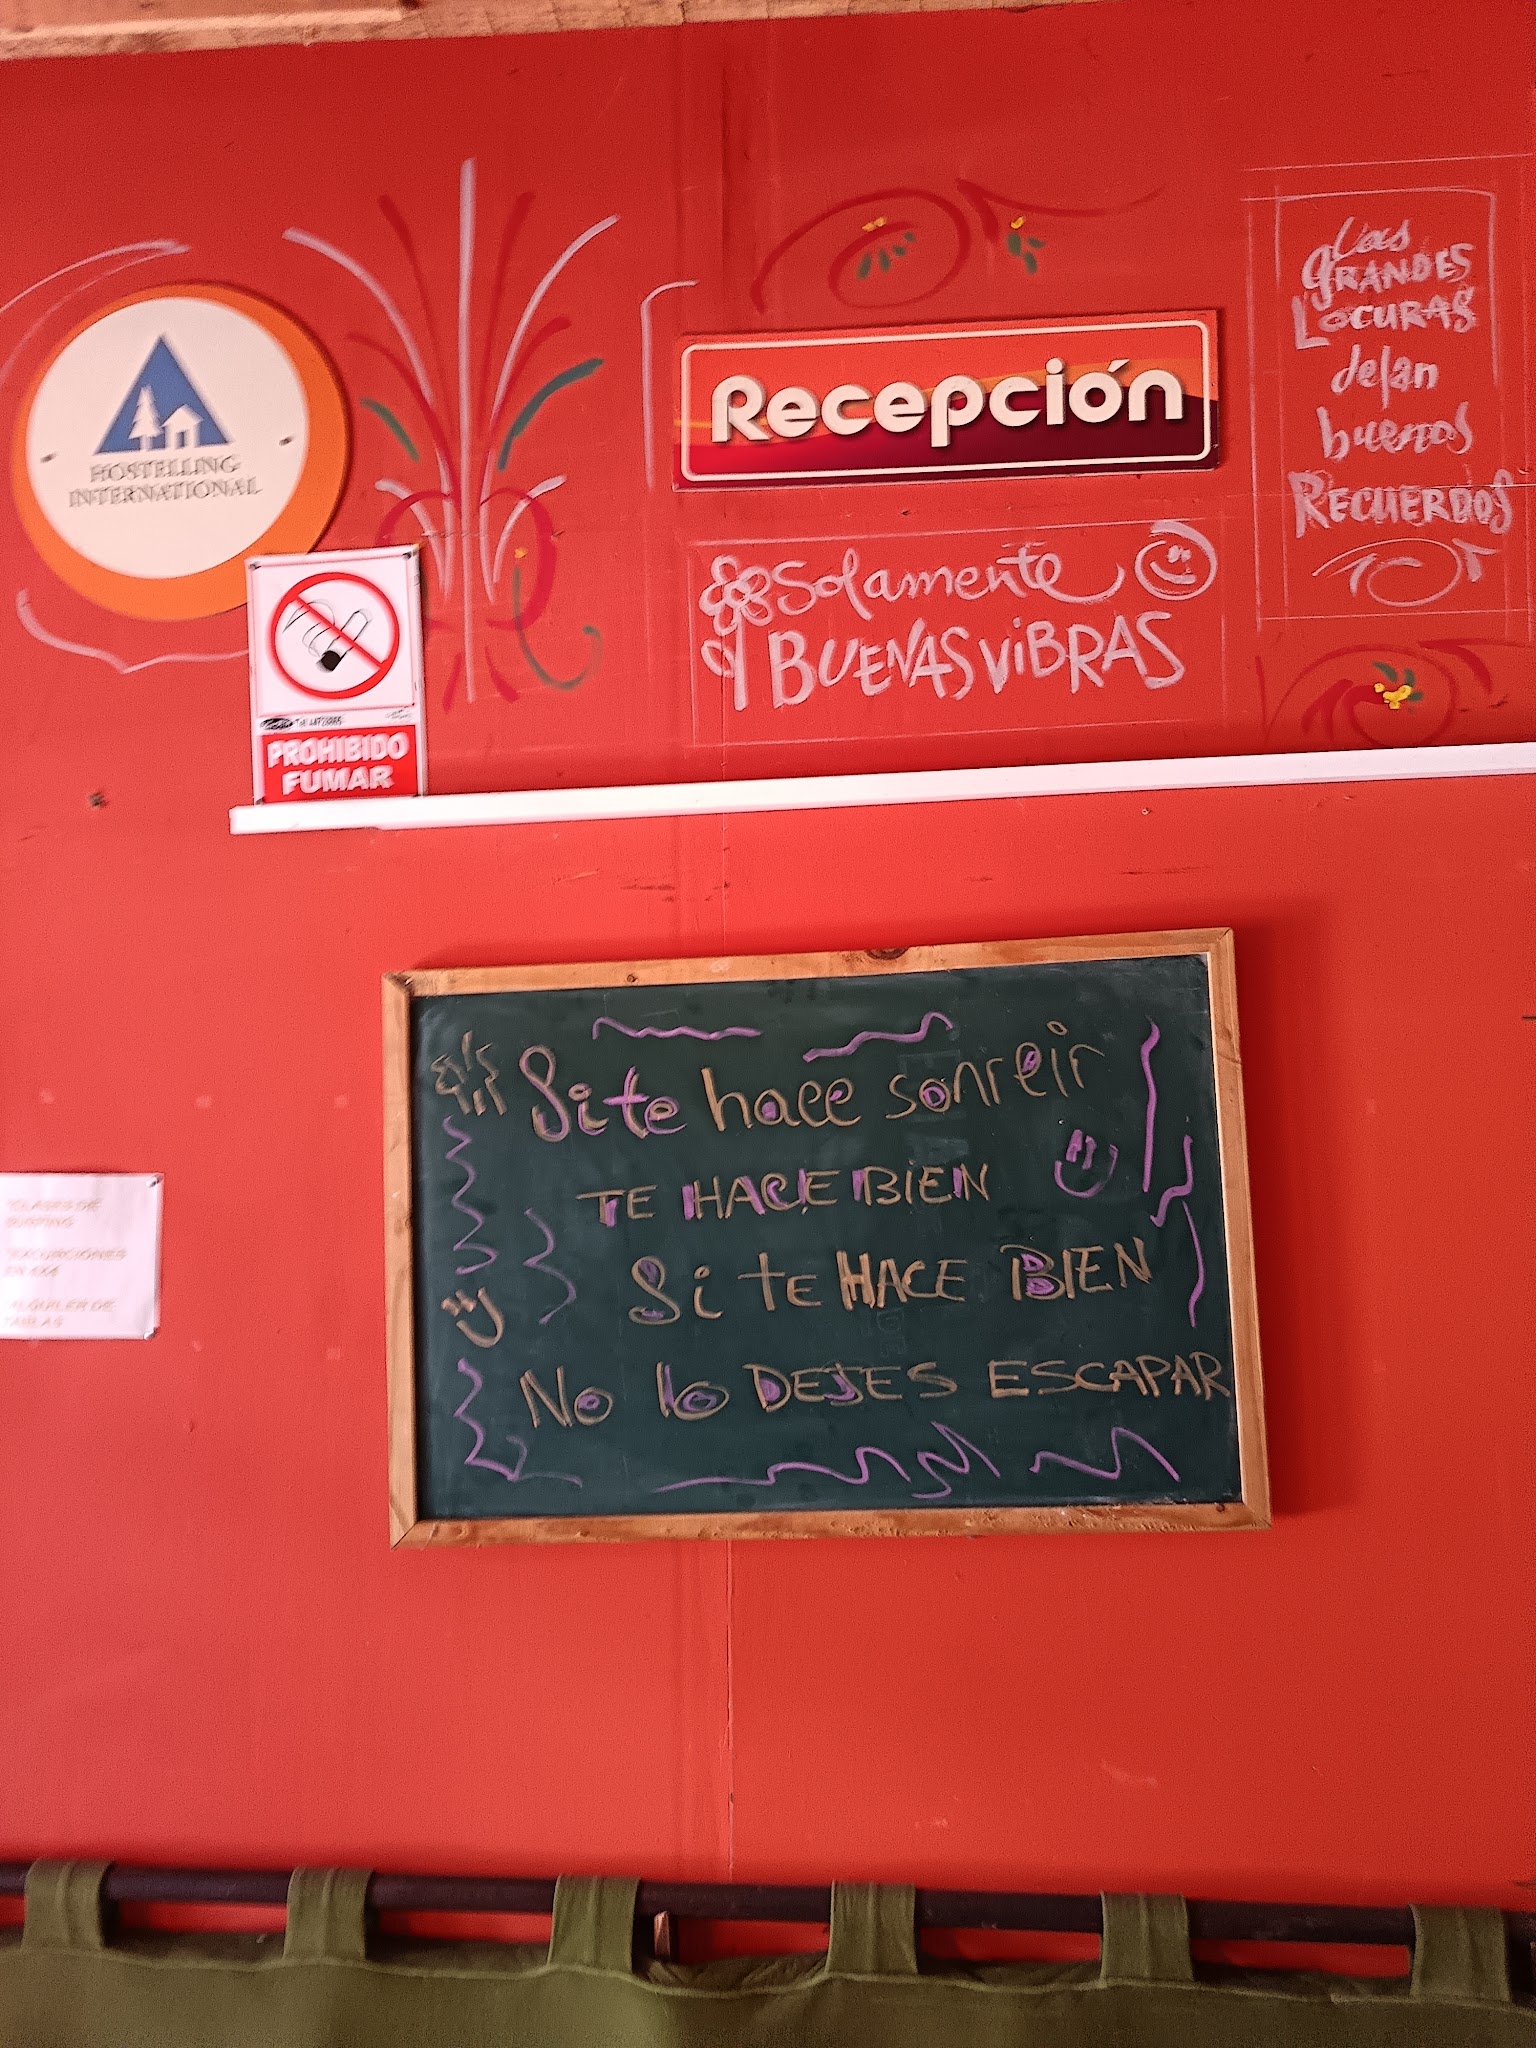 HOSTELLING
INTERNATIONAL
PROHIBIDO
FUMAR
Recepción
Solamente
BUENAS ViBRAS
Las
GRANDES
LOCURAS
dejan
buenos
RECUERDOS
Si te hace sonreir
TE HACE BIEN
Si TE HACE BIEN
No lo DEJES ESCAPAR
CLASES DE
SURFING
EXCURCIONES
EN 4X4
ALQUILER DE
TABLAS